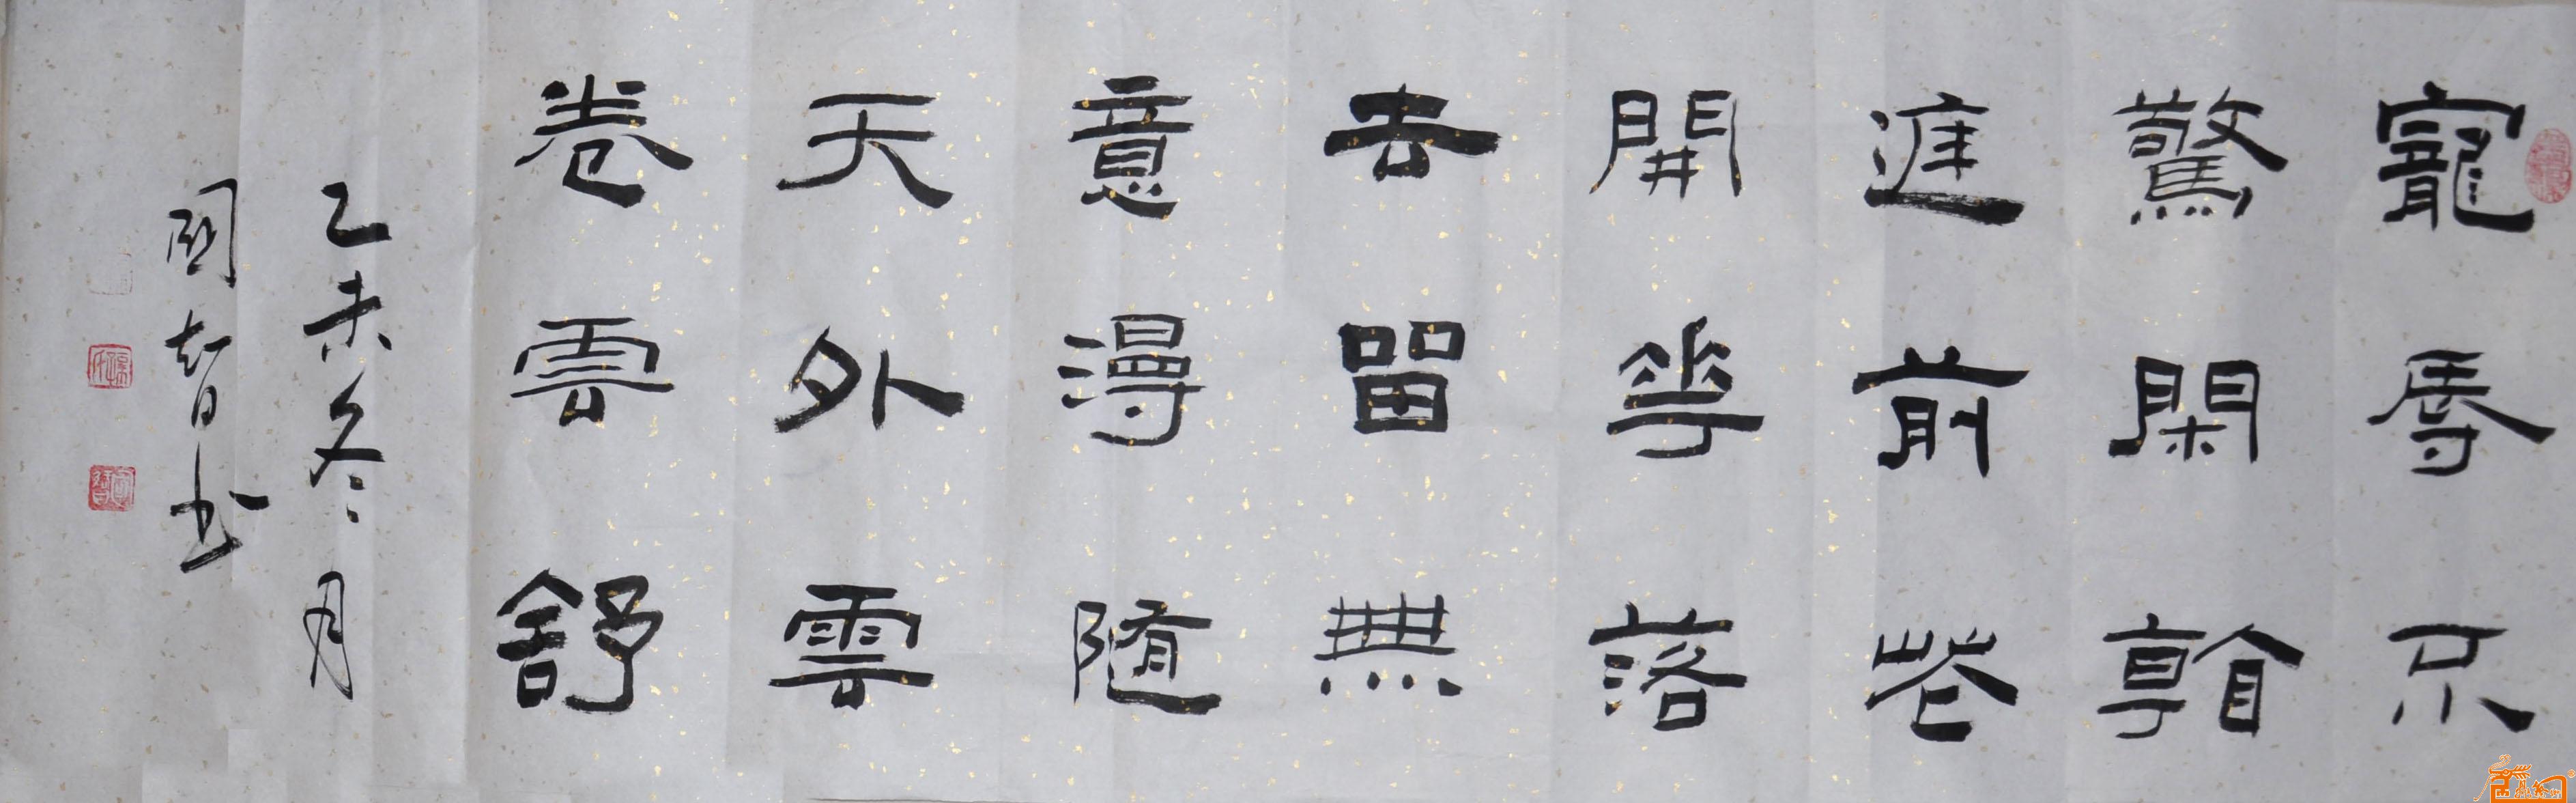 寵辱不
驚閑看
庭前花
開花落
去留無
意漫随
天外雲
卷雲舒
乙未冬月
國智书